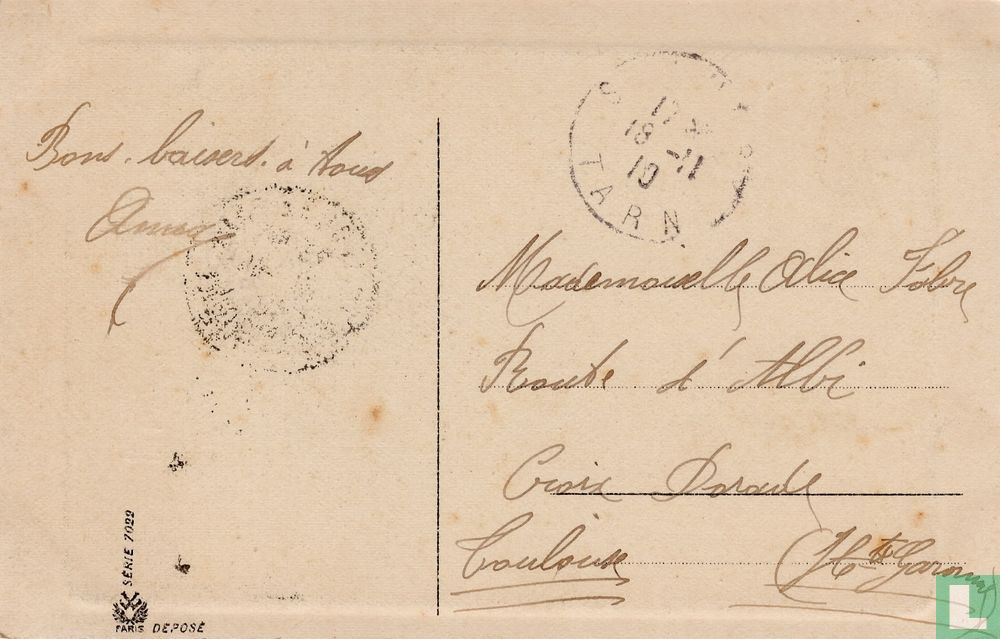 Bons baisers à tous
Anna
TARN
12
18 XII
10
Mademoiselle Alice Fabre
Route d'Albi
Croix Daurade
Toulouse (Hte Garonne)
SÉRIE 7022
PARIS DEPOSÉ
L